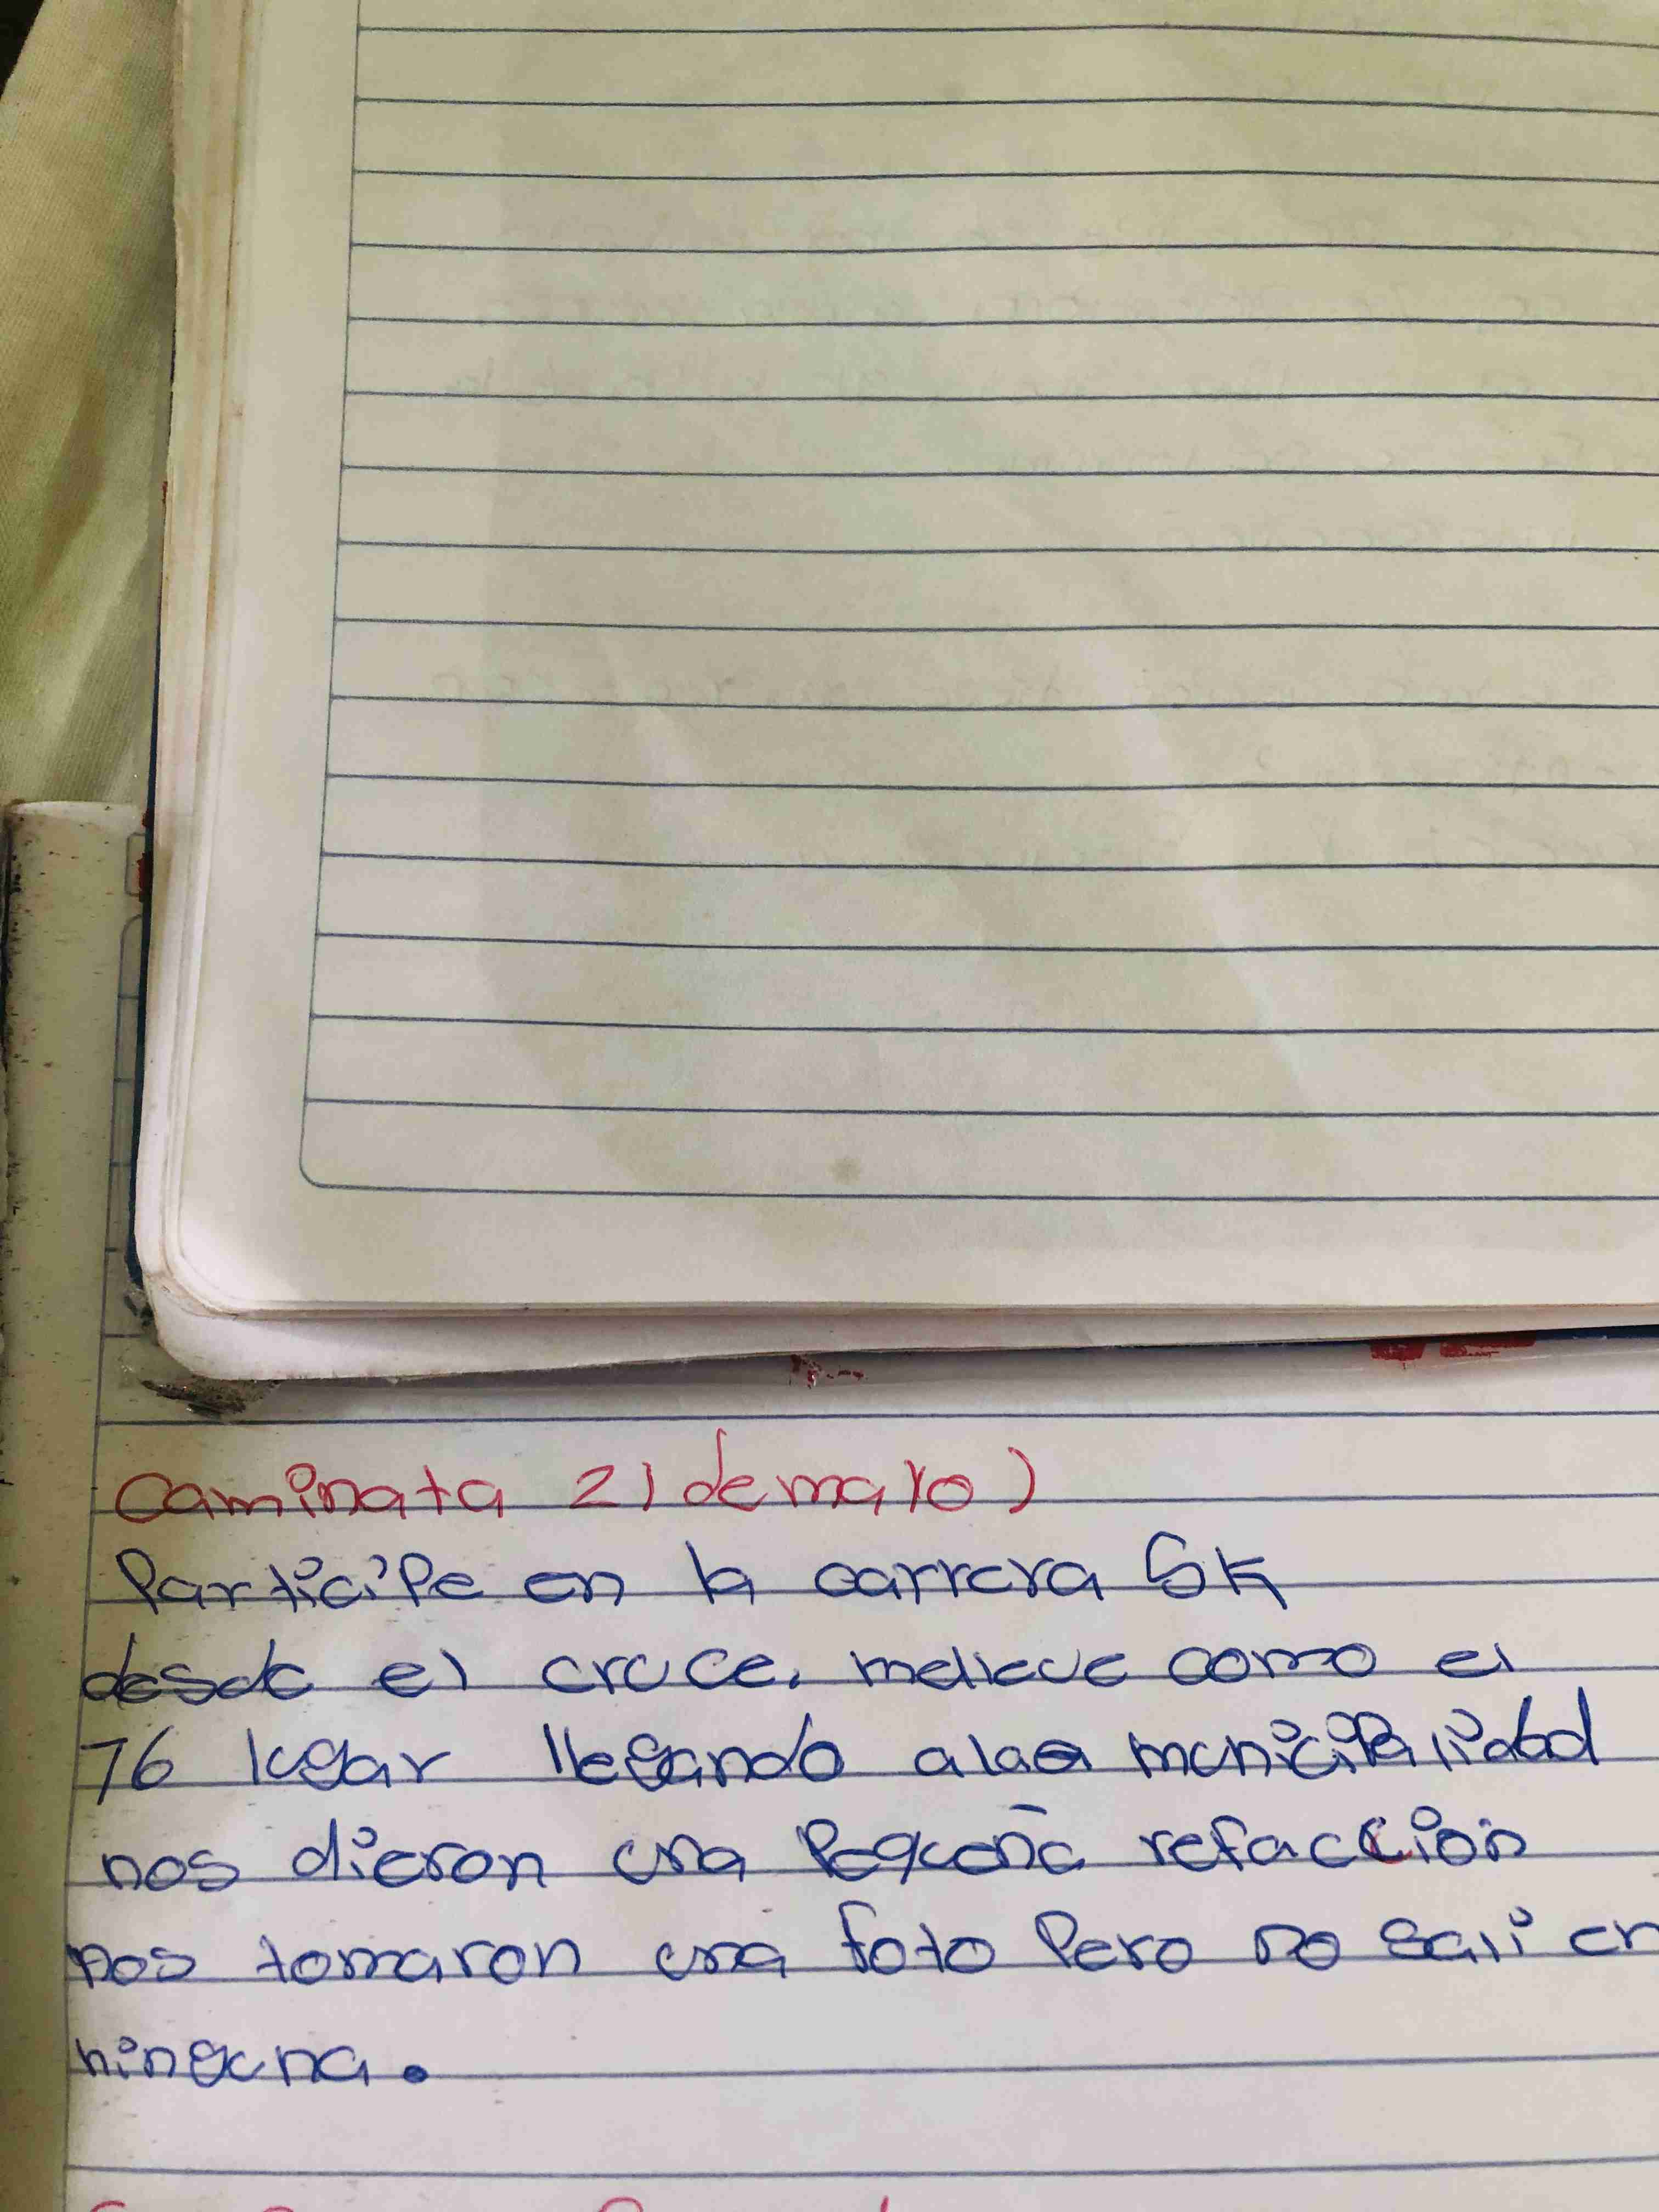 Caminata 21 de mayo)
Participe en la carrera 5K
desde el cruce. melleve como el
76 lugar llegando a laa municipalidad
nos dieron una Pequeña refaccion
nos tomaron una foto Pero no sali en
ninguna.